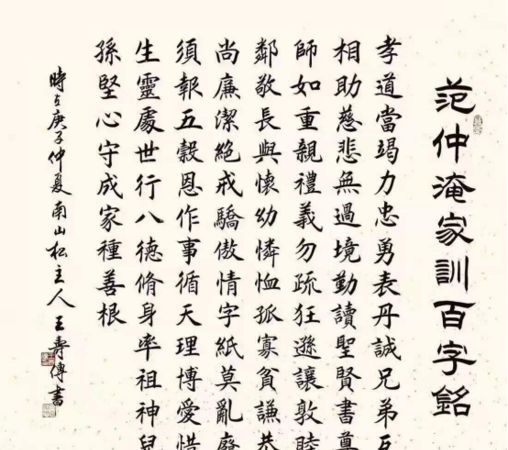 范仲淹家訓百字銘
孝道當竭力忠勇表丹誠兄弟互
相助慈悲無過境勤讀聖賢書尊
師如重親禮義勿疏狂遜讓敦睦
鄰敬長與懷幼憐恤孤寡貧謙恭
尚廉潔絕戒驕傲情字紙莫亂廢
須報五穀恩作事循天理博愛惜
生靈處世行八德脩身率祖神兒
孫堅心守成家種善根
時在庚子仲夏南山松主人王壽傳書